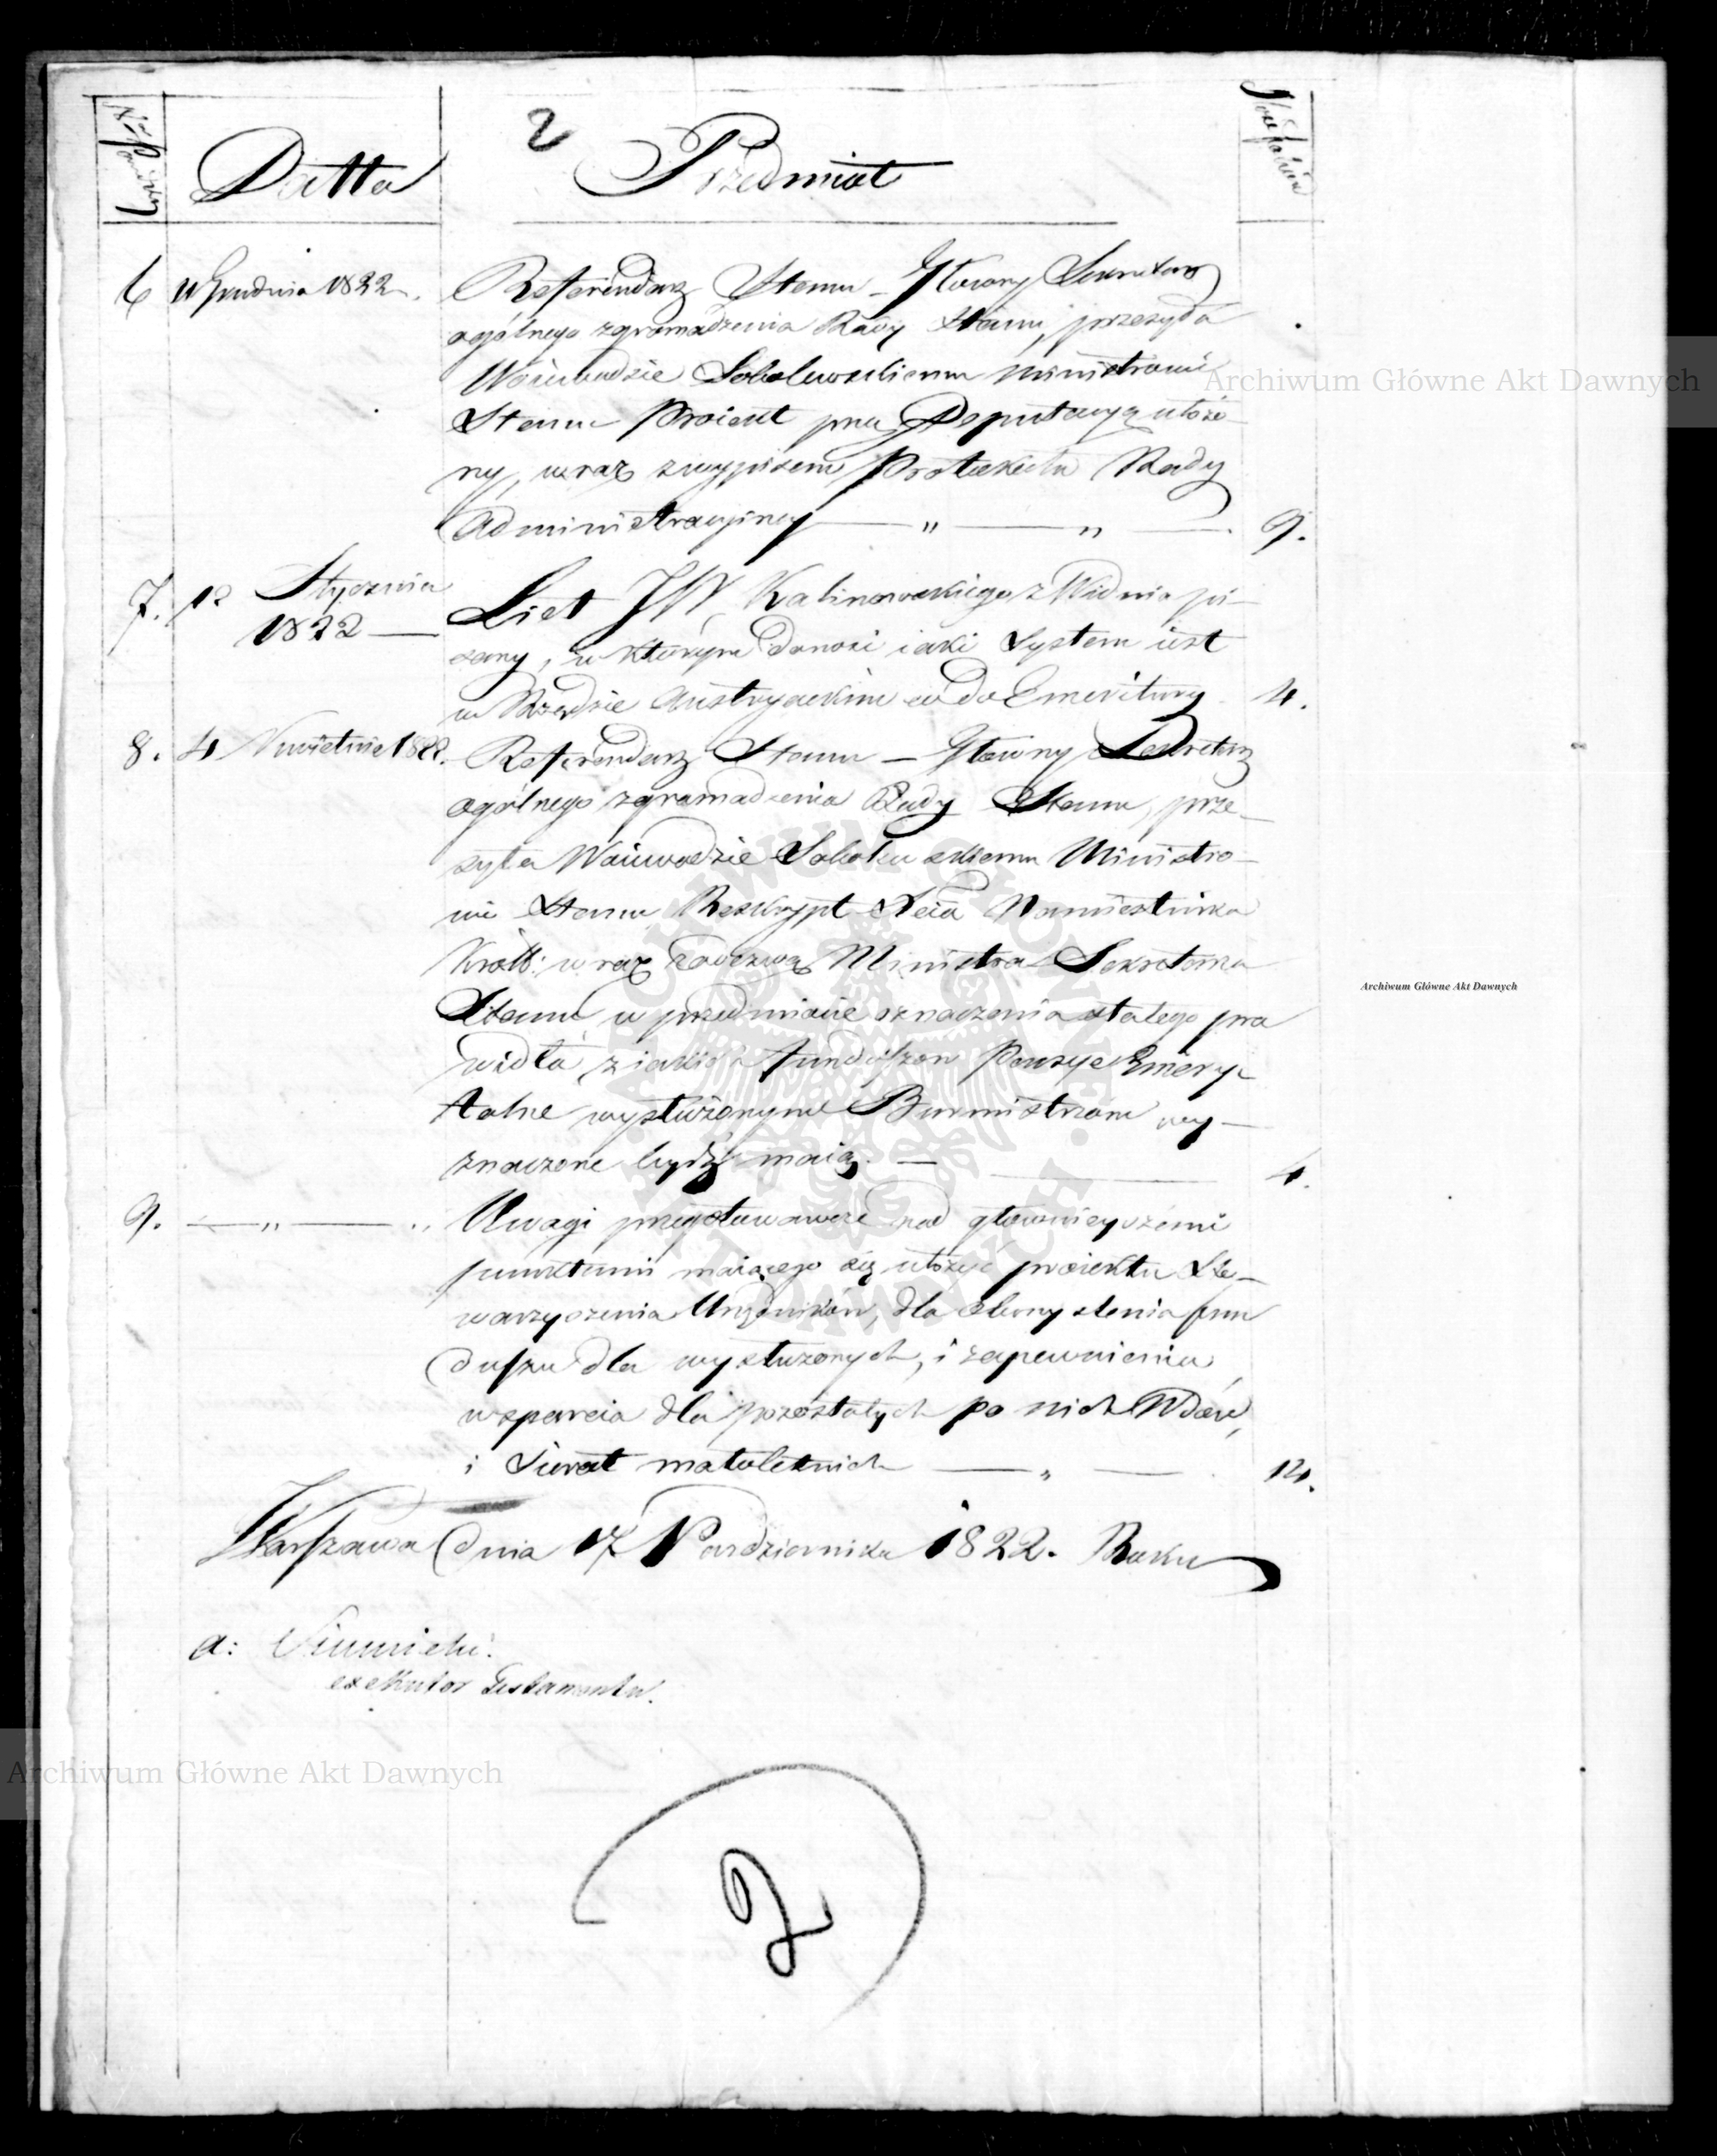 2
Nr Porządkowy
Datta
Przedmiot
Ilość folio
6 11 Grudnia 1822.
Referendarz Stanu – Główny Sekretarz
ogólnego zgromadzenia Rady Stanu, przesyła
Woiewodzie Sobolewskiemu Ministrowi
Stanu Proiekt przez Deputacyą ułożo-
ny, wraz z wypisem Protokułu Rady
Administracyiney — „ — „ — 9.
7. 12 Stycznia
1822 —
List JW Kalinowskiego z Widnia pi-
sany, w którym donosi iaki System iest
w Rządzie Austryackim co do Emerytury 4.
8. 4 Kwietnia 1822.
Referendarz Stanu – Główny Sekretarz
ogólnego zgromadzenia Rady Stanu, prze-
syła Woiewodzie Sobolewskiemu Ministro-
wi Stanu Reskrypt Xcia Namiestnika
Królb: wraz z odezwą Ministra Sekretarza
Stanu w przedmiocie oznaczenia stałego pra
widła z iakich funduszow Pensye Emery-
talne wysłużonym Burmistrzom wy-
znaczone bydź maią. — 4.
9. — „ — „
Uwagi przygotowawcze nad głownieyszemi
punktami maiącego się ułożyć proiektu Sto-
warzyszenia Urzędników, dla obmyslenia fun
duszu dla wysłużonych, i zapewnienia
wsparcia dla pozostałych po nich Wdów,
i Sierot małoletnich — „ — 12.
Warszawa dnia 17 Pazdziernika 1822. Roku
a:
exekutor Testamentu.
2
Archiwum Główne Akt Dawnych
Archiwum Główne Akt Dawnych
Archiwum Główne Akt Dawnych
ARCHIWUM GŁÓWNE
AKT DAWNYCH